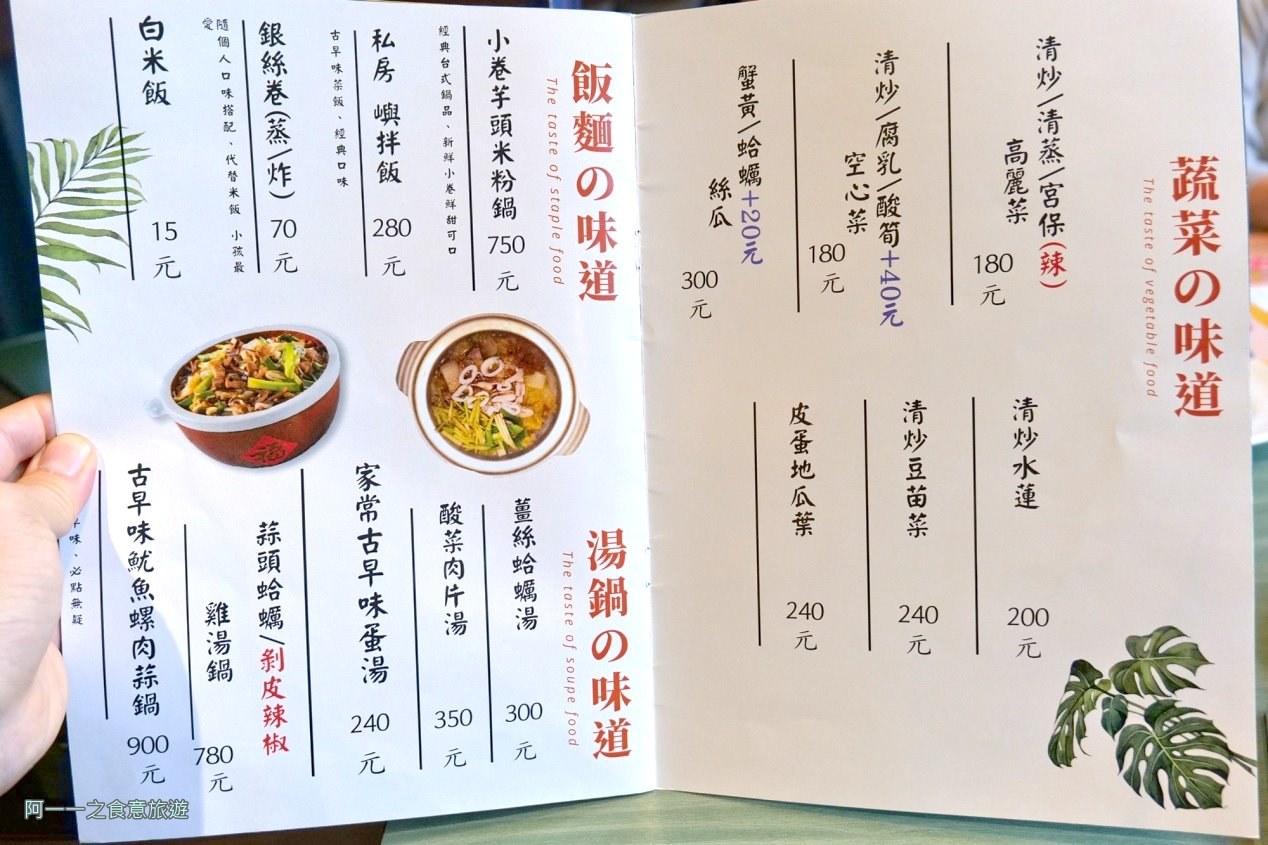 蔬菜の味道
The taste of vegetable food
清炒/清蒸/宮保(辣)
高麗菜
180
元
清炒/腐乳/酸筍+40元
空心菜
180
元
蟹黃/蛤蠣+20元
絲瓜
300
元
清炒水蓮
200
元
清炒豆苗菜
240
元
皮蛋地瓜葉
240
元
飯麵の味道
The taste of staple food
小卷芋頭米粉鍋
750
元
經典台式鍋品、新鮮小卷鮮甜可口
私房 嶼拌飯
280
元
古早味菜飯、經典口味
銀絲卷(蒸/炸)
70
元
隨個人口味搭配、代替米飯 小孩最
愛
白米飯
15
元
湯鍋の味道
The taste of soupe food
薑絲蛤蠣湯
300
元
酸菜肉片湯
350
元
家常古早味蛋湯
240
元
蒜頭蛤蠣/剝皮辣椒
雞湯鍋
780
元
古早味魷魚螺肉蒜鍋
900
元
味、必點無疑
阿一一之食意旅遊